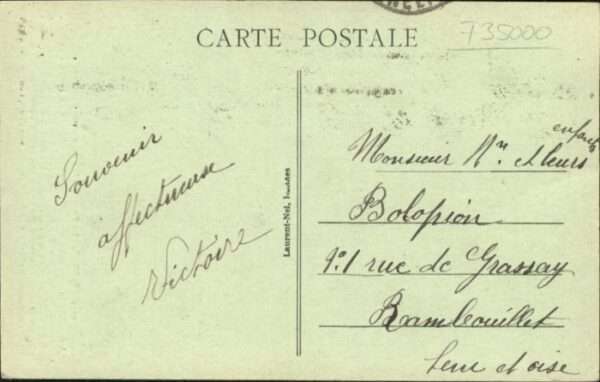 CARTE POSTALE
735000
Souvenir
affectueuse
Victoire
Laurent-Nel, Rennes
enfants
Monsieur Mm et leurs
Bolopion
1 rue de Grassay
Rambouillet
Seine et oise